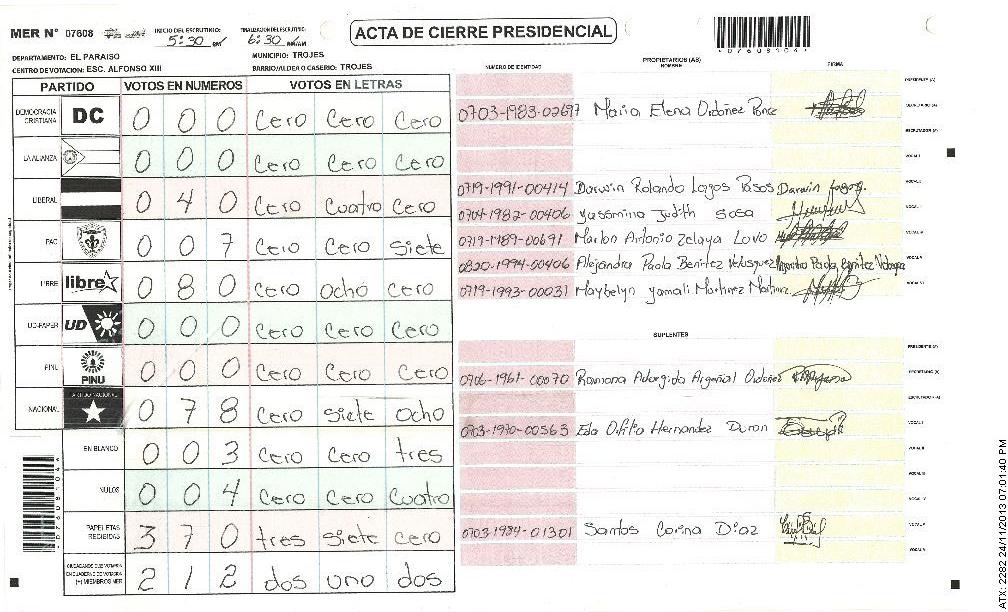 MER N° 07608 INICIO DEL ESCRUTINIO: 5:30 PM FINALIZACION DEL ESCRUTINIO: 6:30 PM/AM
ACTA DE CIERRE PRESIDENCIAL
07608104
DEPARTAMENTO: EL PARAISO MUNICIPIO: TROJES
CENTRO DE VOTACION: ESC. ALFONSO XIII BARRIO/ALDEA O CASERIO: TROJES
PARTIDO VOTOS EN NUMEROS VOTOS EN LETRAS
DEMOCRACIA CRISTIANA DC 0 0 0 Cero Cero Cero
LA ALIANZA 0 0 0 Cero Cero Cero
LIBERAL 0 4 0 Cero Cuatro Cero
PAC 0 0 7 Cero Cero Siete
LIBRE libre 0 8 0 Cero ocho Cero
UD-FAPER UD 0 0 0 Cero Cero Cero
PINU PINU 0 0 0 Cero Cero Cero
NACIONAL PARTIDO NACIONAL 0 7 8 Cero Siete ocho
EN BLANCO 0 0 3 Cero Cero tres
NULOS 0 0 4 Cero Cero Cuatro
PAPELETAS RECIBIDAS 3 7 0 tres siete cero
CIUDADANOS QUE VOTARON EN CUADERNO DE VOTACION (+) MIEMBROS MER 2 1 2 dos uno dos
PROPIETARIOS (AS)
NUMERO DE IDENTIDAD NOMBRE FIRMA
PRESIDENTE (A)
0703-1983-02697 Maria Elena Ordoñez Ponce SECRETARIO (A)
ESCRUTADOR (A)
VOCAL I
0719-1991-00414 Darwin Rolando Lagos Posos Darwin Lagos.
0704-1982-00406 Yassmina Judith Sosa
0719-1989-00691 Marlon Antonio Zelaya Lovo
0820-1994-00406 Alejandra Paola Benitez Velasquez
0719-1993-00031 Maybelyn Yamali Martinez Martinez
SUPLENTES
PRESIDENTE (A)
0706-1961-00070 Ramona Adargida Argeñal Ordoñez SECRETARIO (A)
ESCRUTADOR (A)
0703-1970-00563 Eda Orfita Hernandez Duron VOCAL I
VOCAL II
VOCAL III
VOCAL IV
0703-1984-01301 Santos Corina Diaz VOCAL V
ATX: 2282 24/11/2013 07:01:40 PM